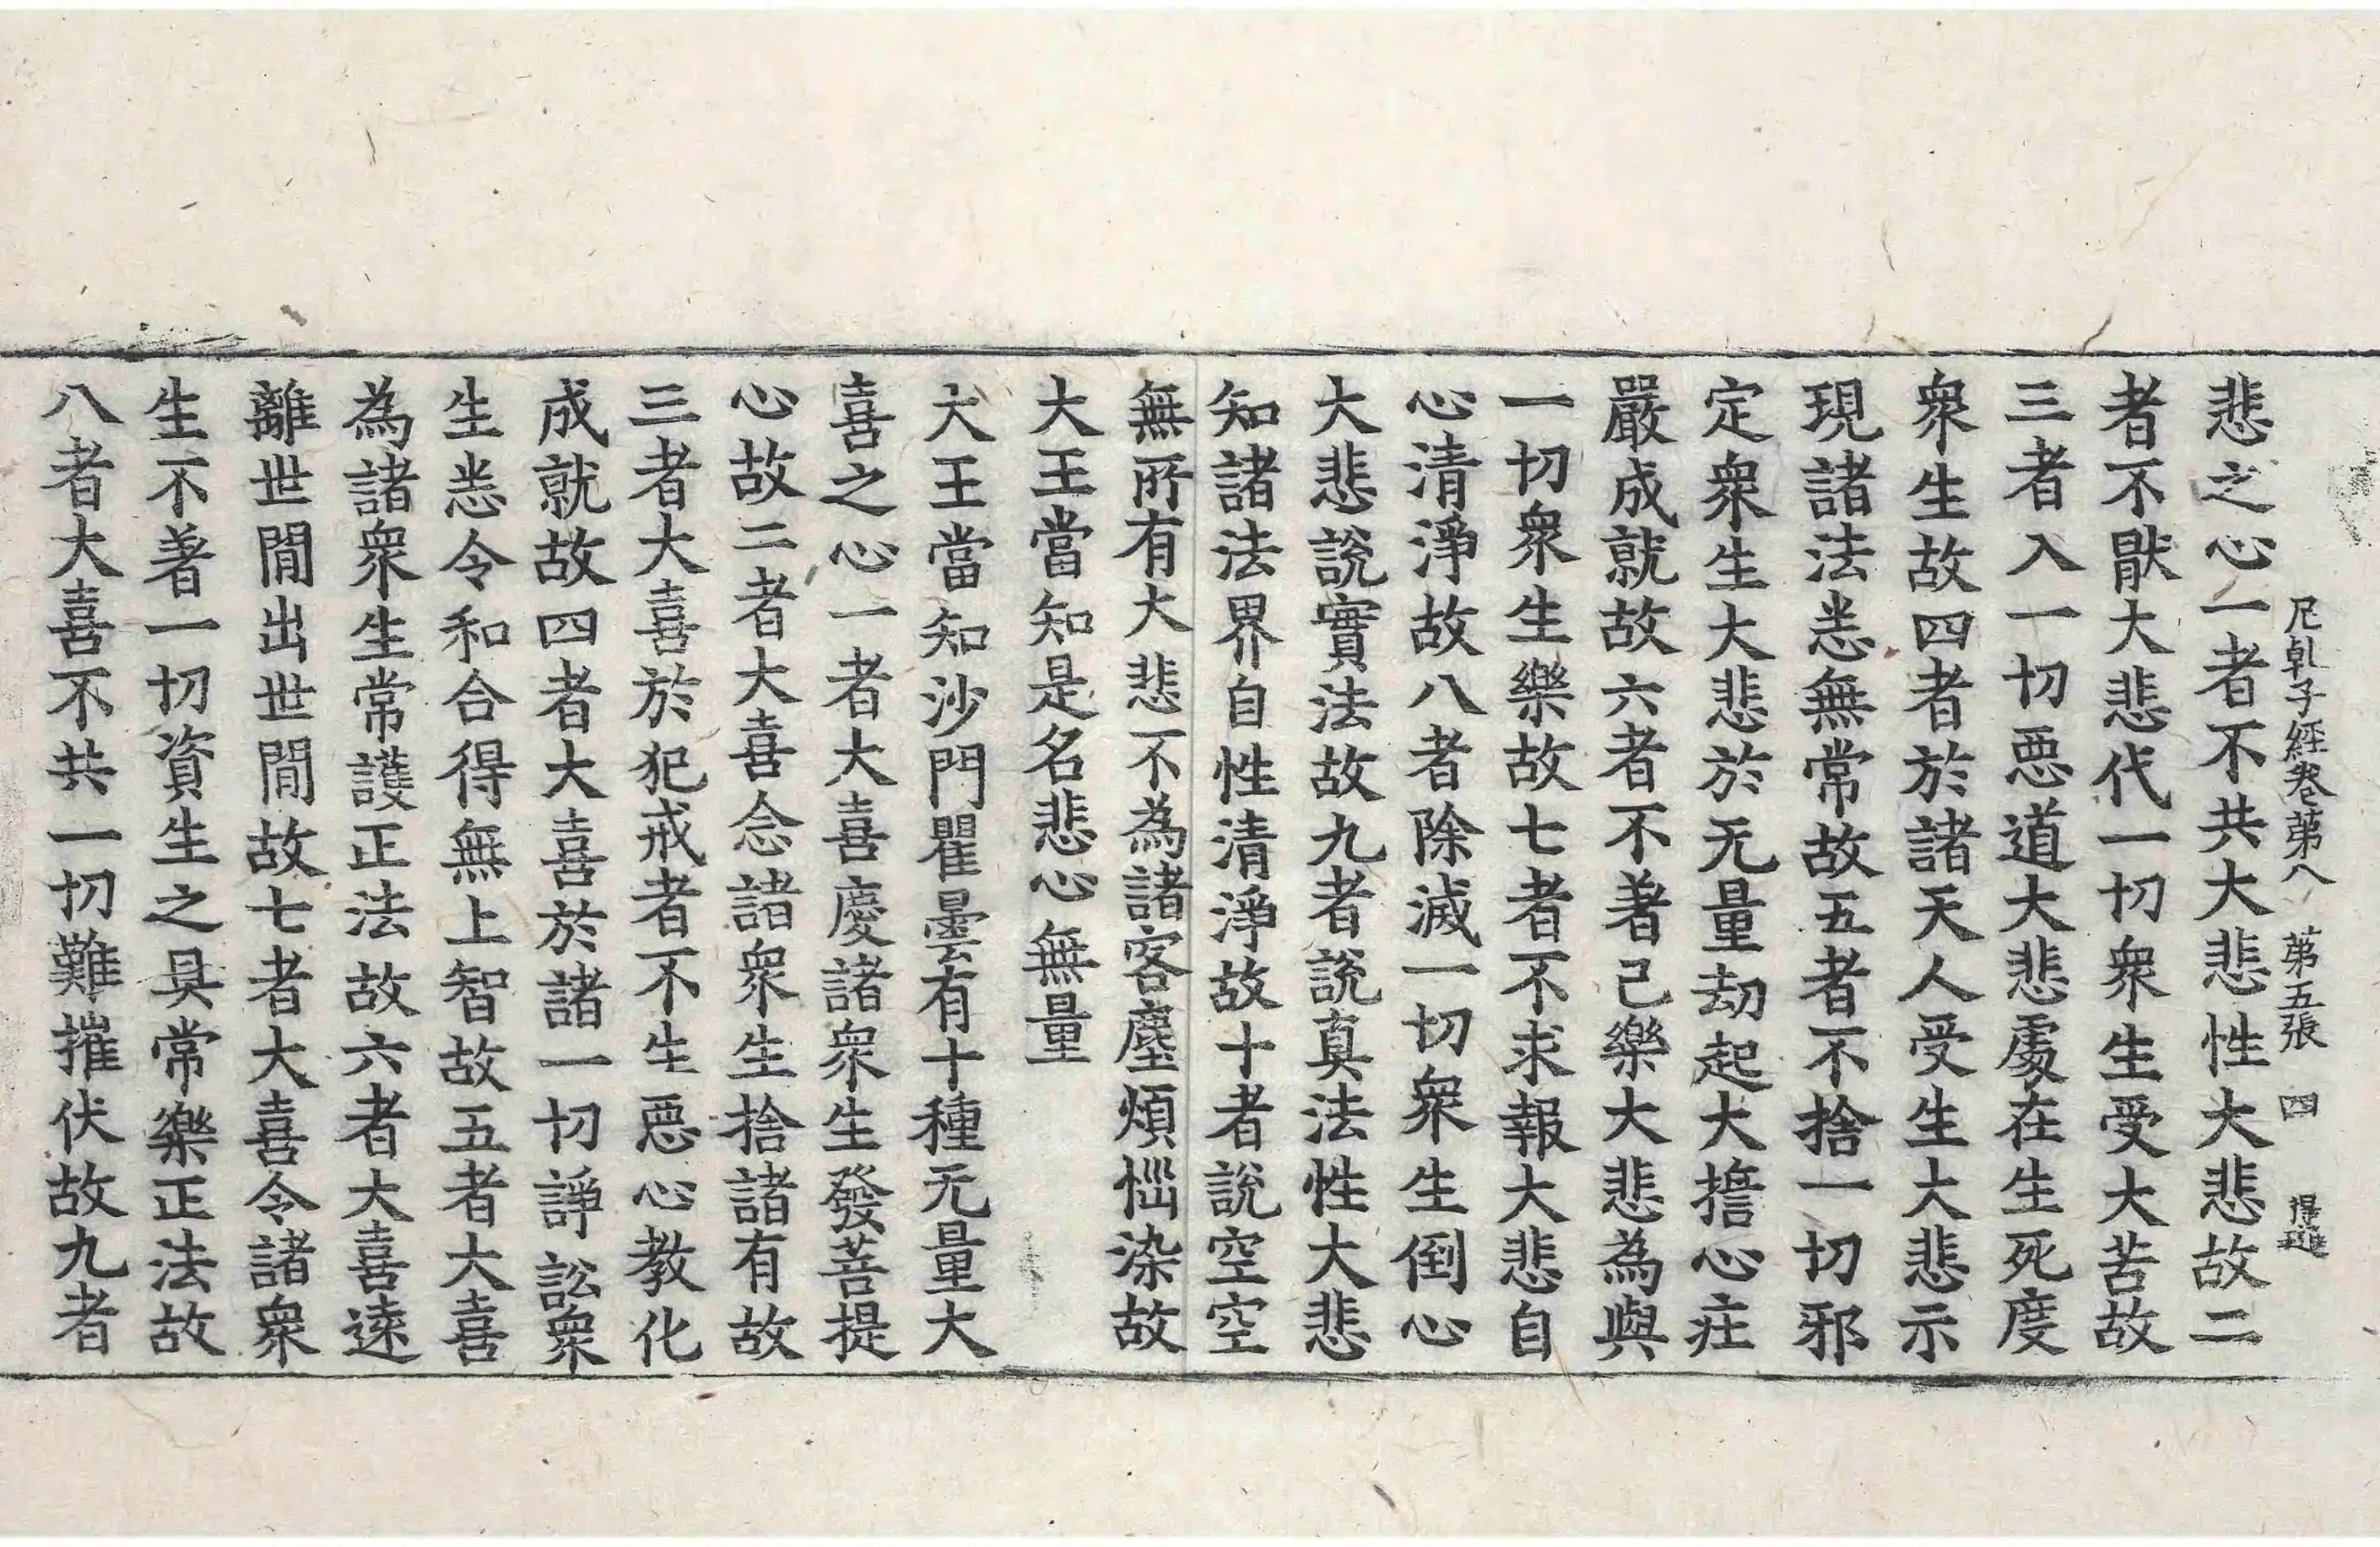 尼乹子經卷第八　第五張　四
悲之心一者不共大悲性大悲故二
者不猒大悲代一切衆生受大苦故
三者入一切惡道大悲處在生死度
衆生故四者於諸天人受生大悲示
現諸法悉無常故五者不捨一切邪
定衆生大悲於无量劫起大擔心庄
嚴成就故六者不著己樂大悲為與
一切衆生樂故七者不求報大悲自
心清淨故八者除滅一切衆生倒心
大悲說實法故九者說真法性大悲
知諸法界自性清淨故十者說空空
無所有大悲不為諸客塵煩惱染故
大王當知是名悲心無量
大王當知沙門瞿曇有十種无量大
喜之心一者大喜慶諸衆生發菩提
心故二者大喜念諸衆生捨諸有故
三者大喜於犯戒者不生惡心教化
成就故四者大喜於諸一切諍訟衆
生悉令和合得無上智故五者大喜
為諸衆生常護正法故六者大喜遠
離世閒出世閒故七者大喜令諸衆
生不著一切資生之具常樂正法故
八者大喜不共一切難摧伏故九者